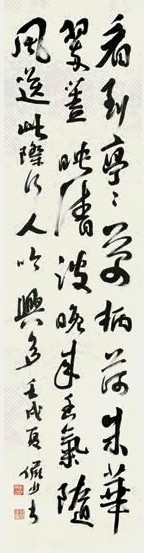 看到亭〻万柄荷朱華
翠蓋映清波晚来香氣隨
風送此際行人吟興多 壬戌夏 儼少書